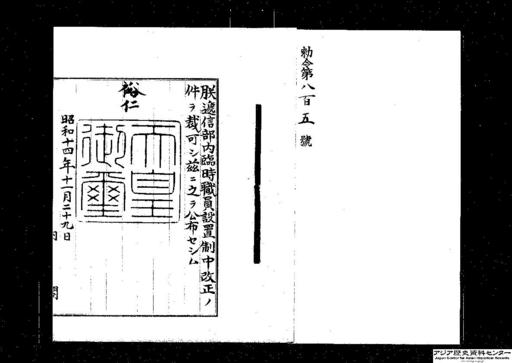 勅令第八百五號
朕遞信部内臨時職員設置制中改正ノ
件ヲ裁可シ茲ニ之ヲ公布セシム
裕仁
天皇
御璽
昭和十四年十一月二十九日
内閣
アジア歴史資料センター
Japan Center for Asian Historical Records